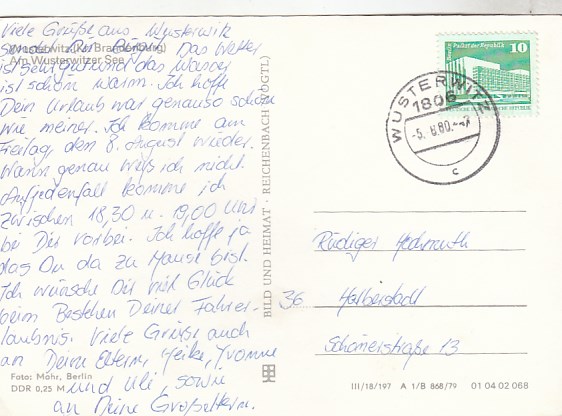 Viele Grüße aus Wusterwitz
sendet Dir
Das Wetter
Wusterwitz (Kr. Brandenburg)
Am Wusterwitzer See
ist sehr gut und das Wasser
ist schön warm. Ich hoffe
Dein Urlaub war genauso schön
wie meiner. Ich komme am
Freitag, den 8. August wieder.
Wann genau weiß ich nicht.
Auf jedenfall komme ich
zwischen 18,30 u. 19,00 Uhr
bei Dir vorbei. Ich hoffe ja
das Du da zu Hause bist.
Ich wünsche Dir viel Glück
beim Bestehen Deiner Fahrer-
laubnis. Viele Grüße auch
an Deine Eltern, Heike, Yvonne
und Uli, sowie
an Deine Großeltern.
Foto: Mohr, Berlin
DDR 0,25 M
BILD UND HEIMAT · REICHENBACH (VOGTL)
Palast der Republik
10
WUSTERWITZ
1806
-5. 8.80.
c
Rüdiger
36 Halberstadt
Schönerstraße 13
III/18/197 A 1/B 868/79 01 04 02 068